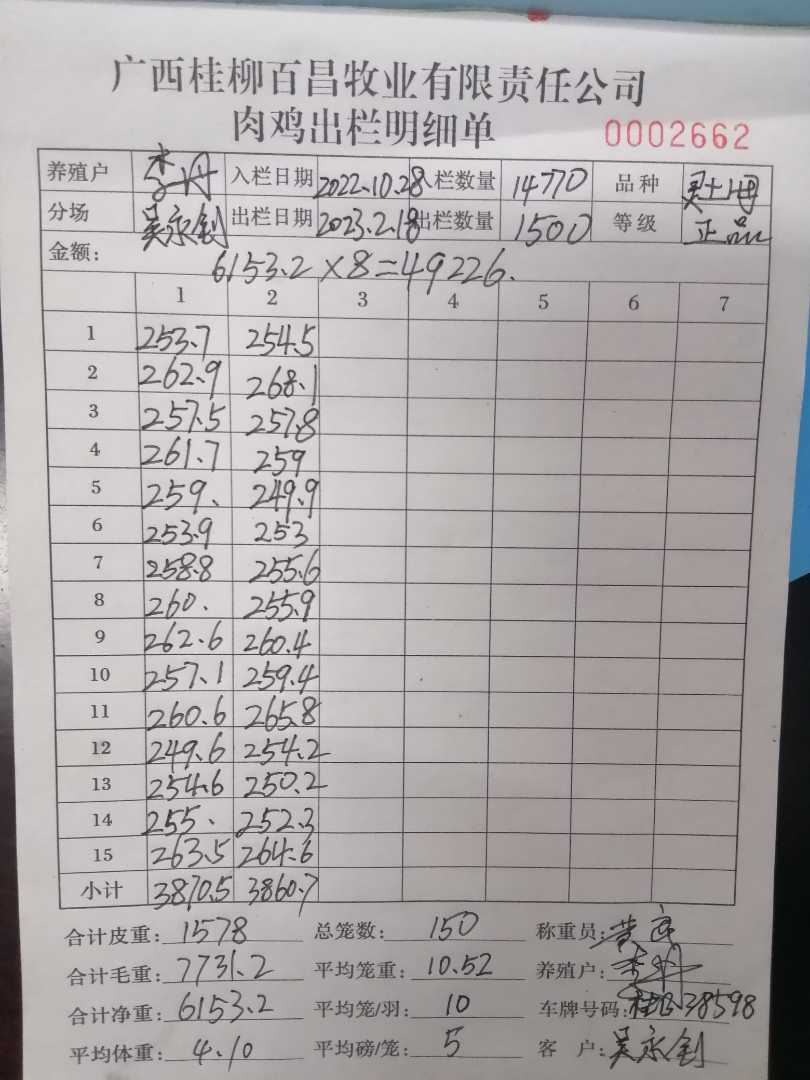 广西桂柳百昌牧业有限责任公司
肉鸡出栏明细单 0002662
养殖户 李 入栏日期 2022.10.28 入栏数量 14770 品种
分场 吴永剑 出栏日期 2023.2.18 出栏数量 1500 等级 正品
金额: 6153.2×8=49226.
1 2 3 4 5 6 7
1 253.7 254.5
2 262.9 268.1
3 257.5 257.8
4 261.7 259
5 259. 249.9
6 253.9 253
7 258.8 255.6
8 260. 255.9
9 262.6 260.4
10 257.1 259.4
11 260.6 265.8
12 249.6 254.2
13 254.6 250.2
14 255. 252.3
15 263.5 264.6
小计 3870.5 3860.7
合计皮重: 1578 总笼数: 150 称重员: 黄
合计毛重: 7731.2 平均笼重: 10.52 养殖户: 李
合计净重: 6153.2 平均笼/羽: 10 车牌号码: 38598
平均体重: 4.10 平均磅/笼: 5 客户: 吴永剑